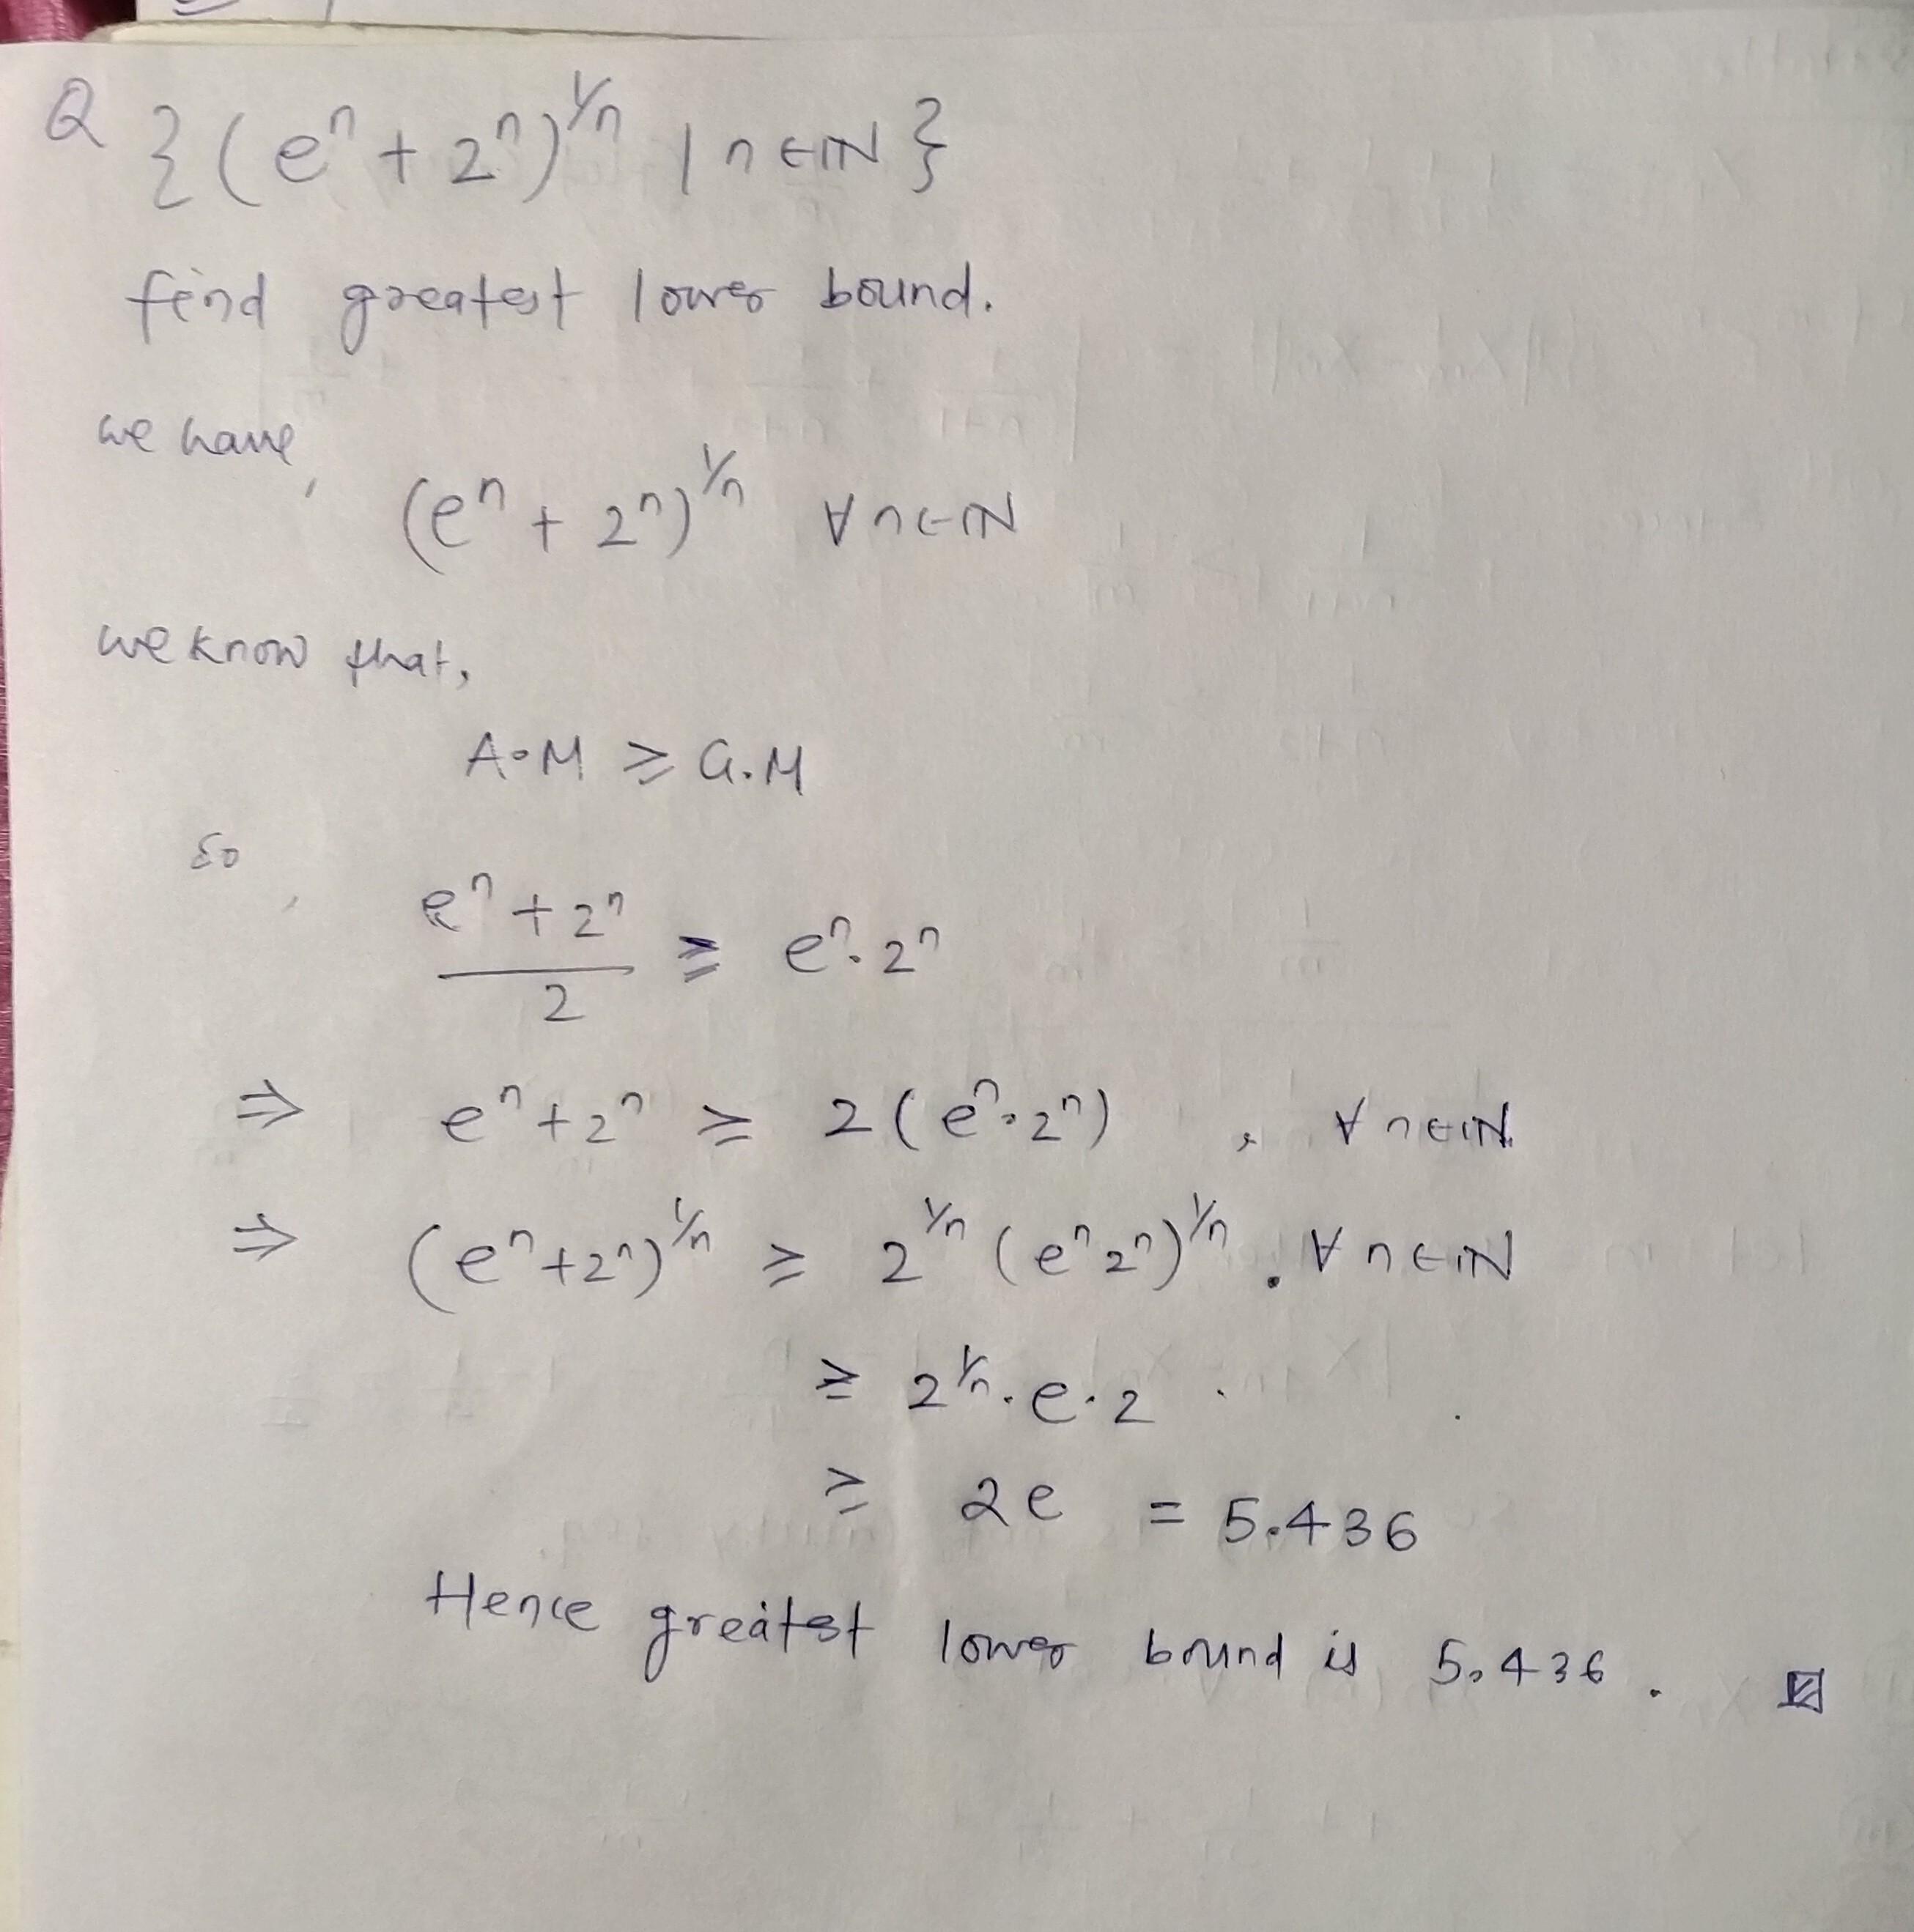 Q {(eⁿ + 2ⁿ)^{1/n} | n ∈ ℕ}
find greatest lower bound.
we have,
(eⁿ + 2ⁿ)^{1/n} ∀ n ∈ ℕ
we know that,
A.M ≥ G.M
so,
(eⁿ + 2ⁿ)/2 ≥ eⁿ.2ⁿ
⇒ eⁿ + 2ⁿ ≥ 2(eⁿ.2ⁿ) , ∀ n ∈ ℕ
⇒ (eⁿ + 2ⁿ)^{1/n} ≥ 2^{1/n} (eⁿ 2ⁿ)^{1/n} . ∀ n ∈ ℕ
≥ 2^{1/n}.e.2
≥ 2e = 5.436
Hence greatest lower bound is 5.436.